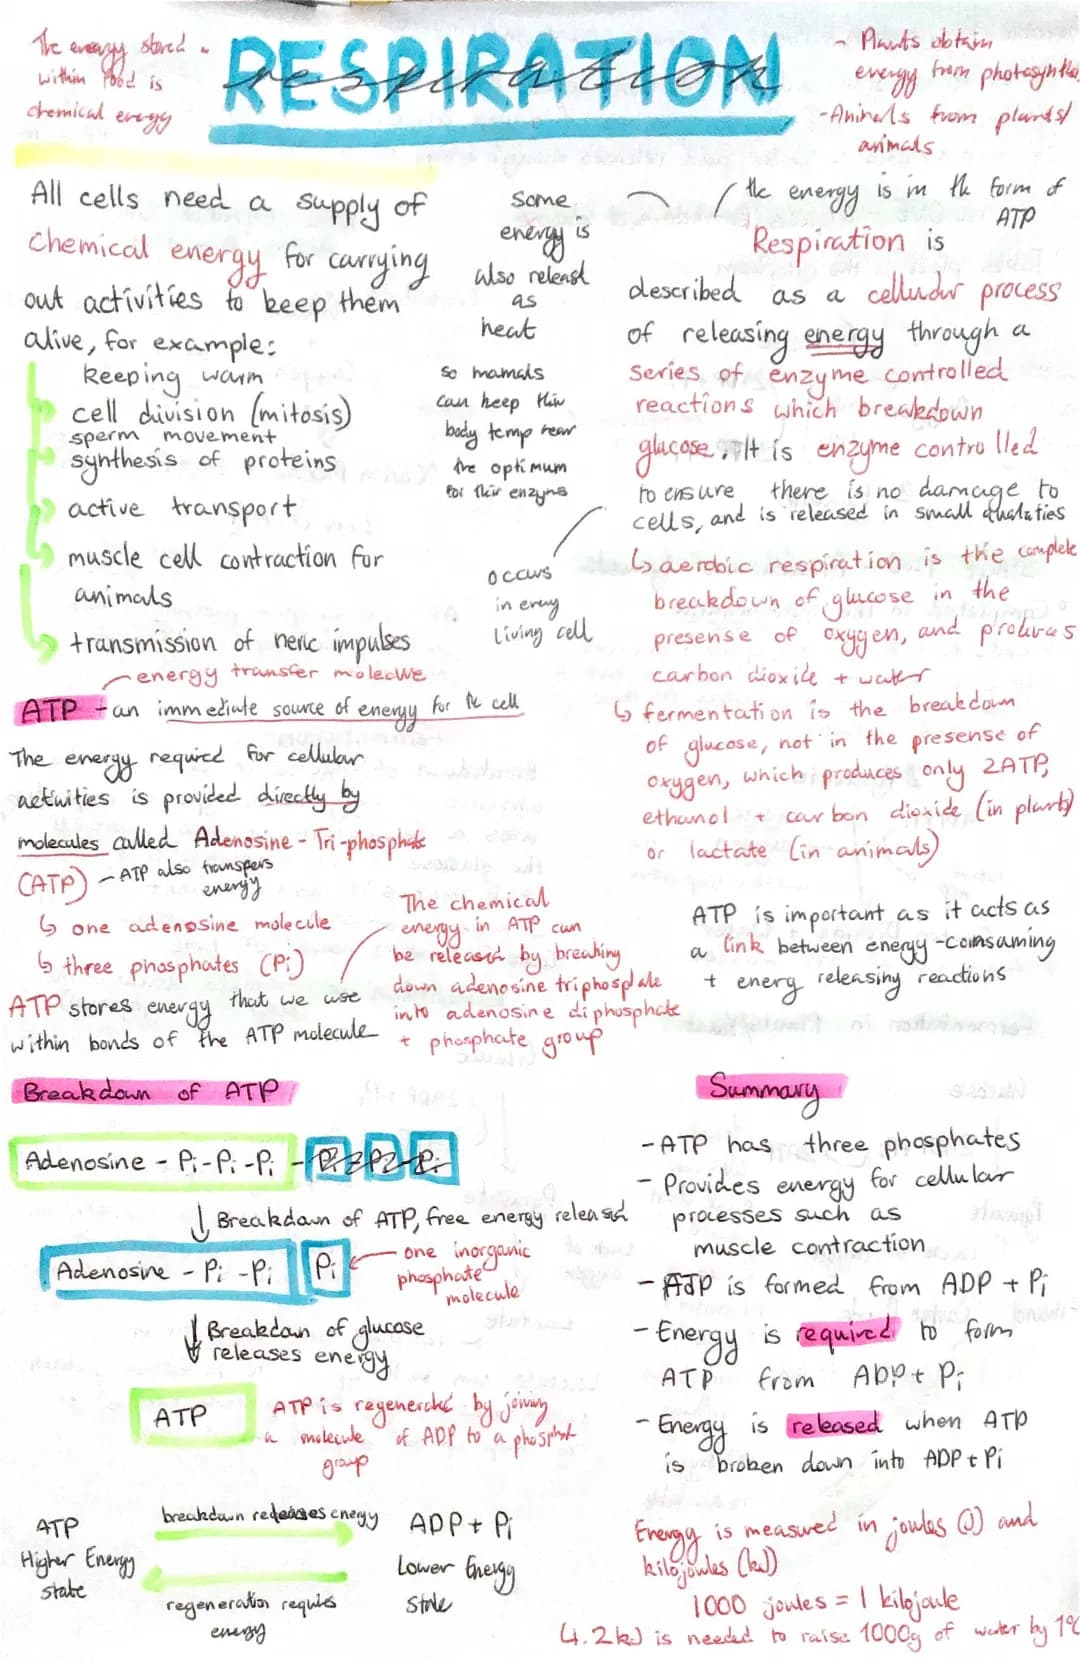 The energy stored
within food is
chemical energy
RESPIRATION
respiration
- Plants obtain
energy from photosynthe
- Animals from plants/
animals
All cells need a supply of
chemical energy for carrying
out activities to keep them
alive, for example:
keeping warm
cell division (mitosis)
sperm movement
synthesis of proteins
active transport
muscle cell contraction for
animals
transmission of neric impulses
some
energy is
also releasd
as
heat
so mamals
can keep thier
body temp near
the optimum
for their enzyms
the energy is in the form of
ATP
Respiration is
described as a celludar process
of releasing energy through a
series of enzyme controlled
reactions which breakdown
glucose. It is enzyme controlled
to ensure there is no damage to
cells, and is released in small
occurs
in every
living cell
↳ aerobic respiration is the complete
breakdown of glucose in the
presense of oxygen, and produces
carbon dioxide + water
↳ fermentation is the breakdown
of glucose, not in the presense of
oxygen, which produces only 2ATP,
ethanol + carbon dioxide (in plants)
or lactate (in animals)
energy transfer molecule
ATP - an immediate source of energy for the cell
The energy required for cellular
activities is provided directly by
molecules called Adenosine - Tri-phosphate
(ATP) - ATP also transfers
energy
↳ one adenosine molecule
↳ three phosphates (Pi)
ATP stores energy that we use
within bonds of the ATP molecule
The chemical
energy in ATP can
be released by breaking
down adenosine triphosphate
into adenosine diphosphate
+ phosphate group
ATP is important as it acts as
a link between energy-comsuming
+ energ releasing reactions
Breakdown of ATP
Adenosine - Pi - Pi - Pi -
↓ Breakdown of ATP, free energy released
Adenosine - Pi - Pi Pi
one inorganic
phosphate
molecule
↓ Breakdown of glucose
releases energy
ATP
ATP is regenerated by joining
a molecule of ADP to a phosphate
group
ATP
Higher Energy
state
breakdown releases energy
regeneration requires
energy
ADP + Pi
Lower Energy
State
Summary
- ATP has three phosphates
- Provides energy for cellular
processes such as
muscle contraction
- ATP is formed from ADP + Pi
- Energy is required to form
ATP from ADP + Pi
- Energy is released when ATP
is broken down into ADP + Pi
Energy is measured in joules (J) and
kilojoules (kJ)
1000 joules = 1 kilojoule
4.2kJ is needed to raise 1000g of water by 1°C